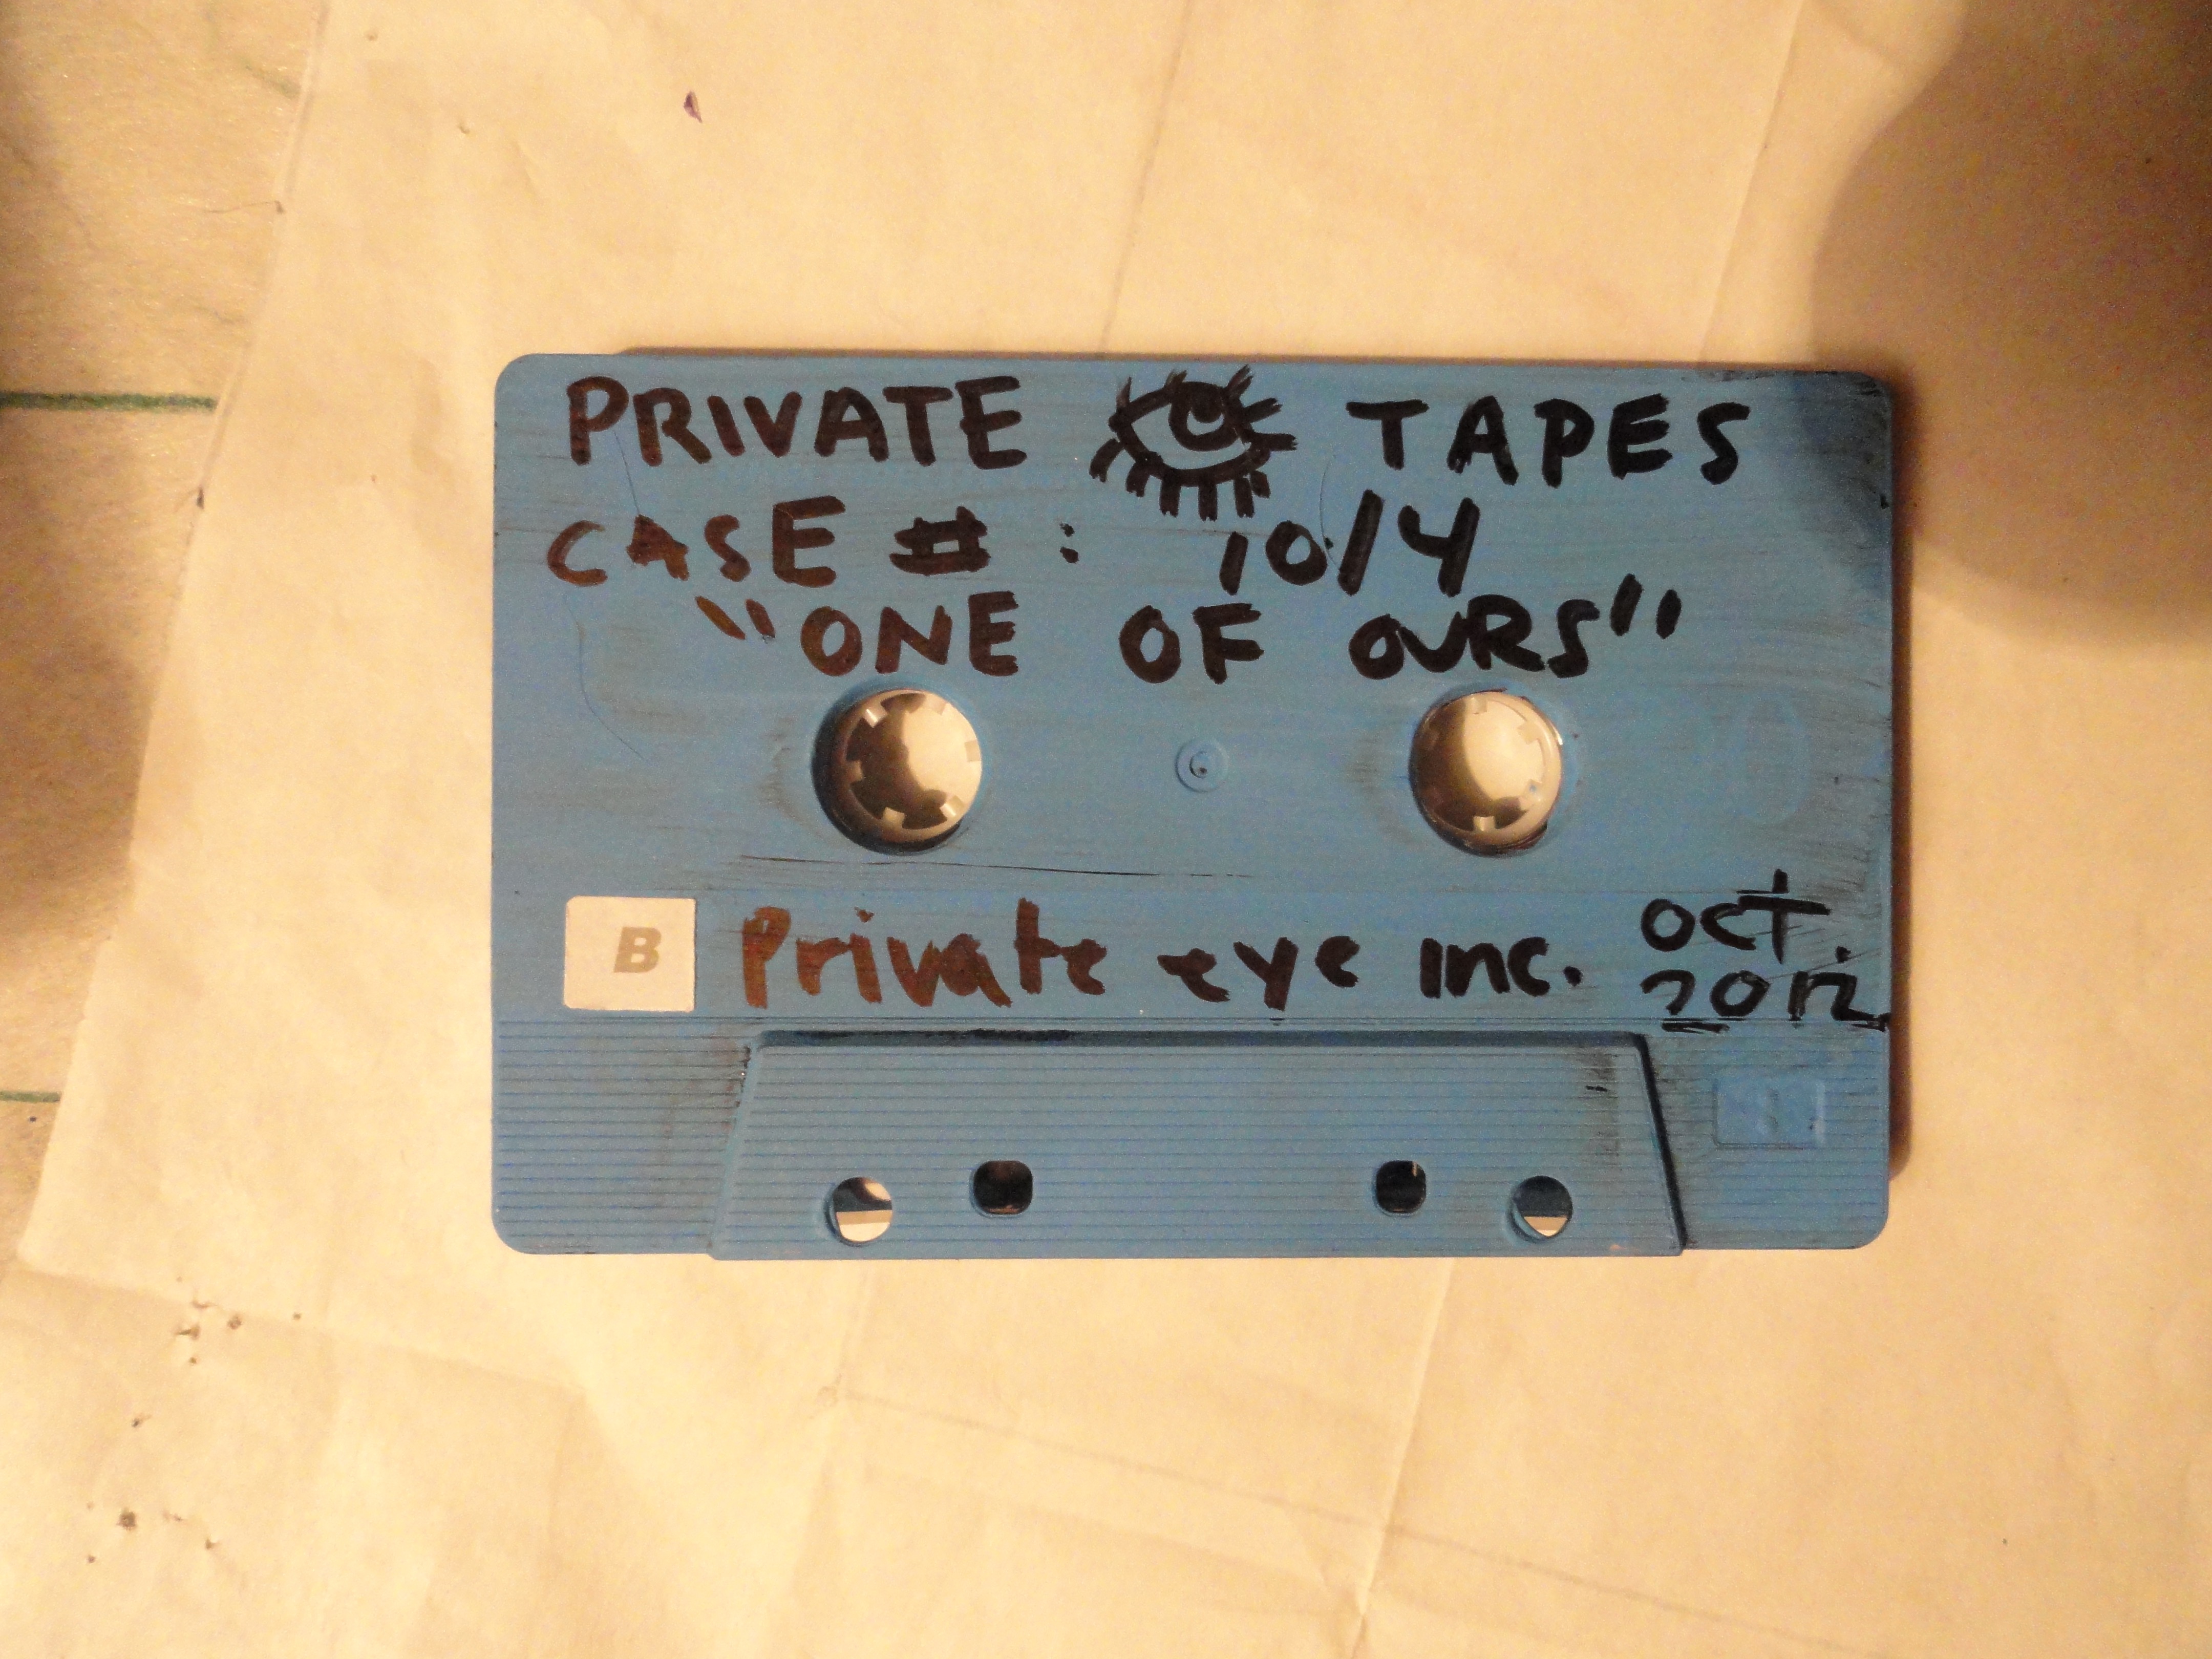 PRIVATE TAPES
CASE #: 10/4
"ONE OF OURS"
B
Private eye inc.
OCT.
2012